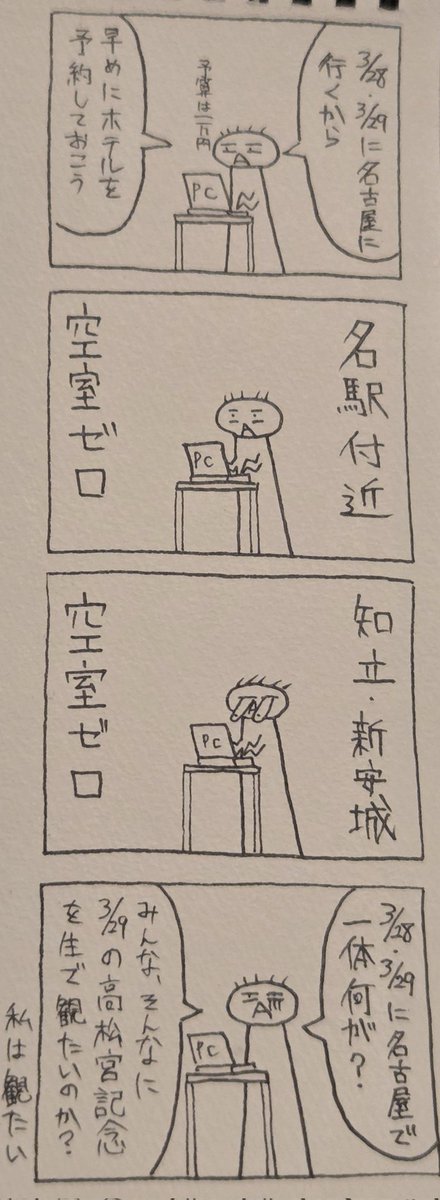 3/28・3/29に名古屋に
行くから
予算は一万円
PC
早めにホテルを
予約しておこう
名駅付近
PC
空室ゼロ
知立・新安城
PC
空室ゼロ
3/28・3/29に名古屋で
一体何が?
PC
みんな、そんなに
3/29の高松宮記念
を生で観たいのか?
私は観たい